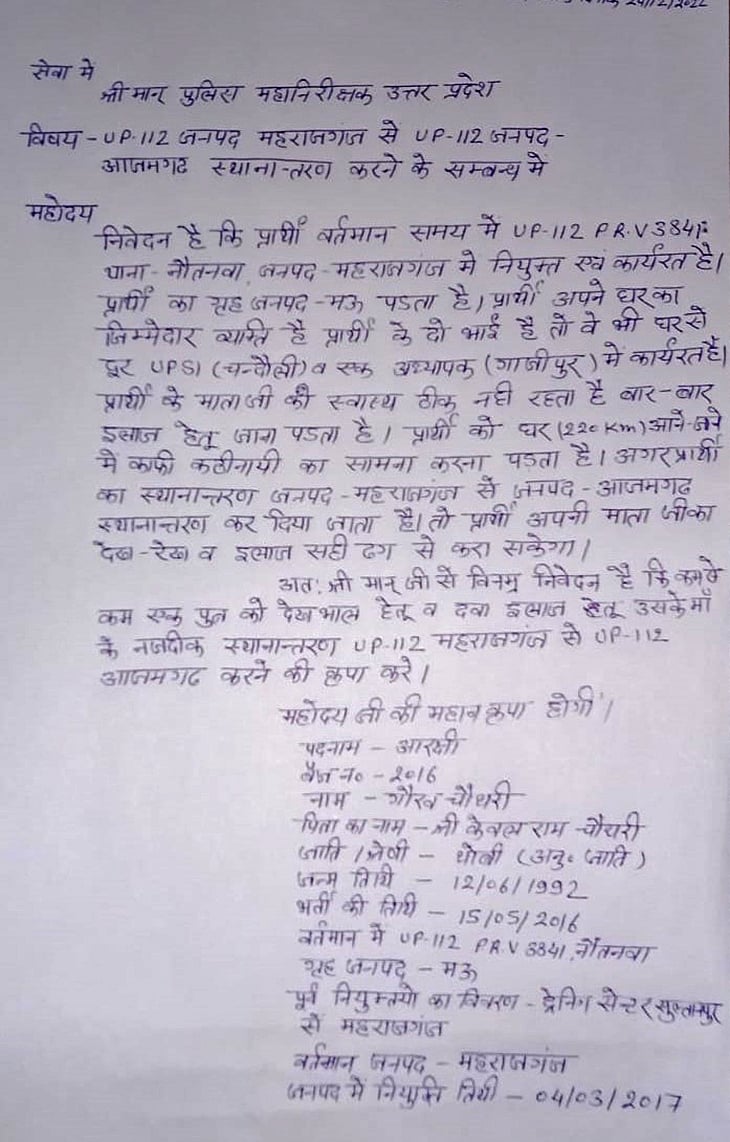 24/12/2022
सेवा मे
श्री मान् पुलिस महानिरीक्षक उत्तर प्रदेश
विषय - UP-112 जनपद महराजगंज से UP-112 जनपद -
आजमगढ स्थानान्तरण करने के सम्बन्ध मे
महोदय
निवेदन है कि प्रार्थी वर्तमान समय में UP-112 P.R.V 3841
थाना - नौतनवा, जनपद - महराजगंज मे नियुक्त एवं कार्यरत है।
प्रार्थी का गृह जनपद - मऊ पडता है। प्रार्थी अपने घर का
जिम्मेदार व्यक्ति है प्रार्थी के दो भाई है तो वे भी घर से
दूर UPSI (चन्दौली) व एक अध्यापक (गाजीपुर) में कार्यरत है।
प्रार्थी के माता जी की स्वास्थ्य ठीक नही रहता है बार-बार
इलाज हेतू जाना पडता है। प्रार्थी को घर (220 Km) आने-जाने
में काफी कठीनायी का सामना करना पडता है। अगर प्रार्थी
का स्थानान्तरण जनपद - महराजगंज से जनपद - आजमगढ
स्थानान्तरण कर दिया जाता है। तो प्रार्थी अपनी माता जी का
देख-रेख व इलाज सही ढग से करा सकेगा।
अतः श्री मान् जी से विनम्र निवेदन है कि कम से
कम एक पुत्र को देखभाल हेतू व दवा इलाज हेतू उसके माँ
के नजदीक स्थानान्तरण UP-112 महराजगंज से UP-112
आजमगढ करने की कृपा करे।
महोदय जी की महान कृपा होगी।
पदनाम - आरक्षी
बैज न० - 2016
नाम - गौरव चौधरी
पिता का नाम - श्री केवल राम चौधरी
जाति / श्रेणी - धोबी (अनु० जाति)
जन्म तिथि - 12/06/1992
भर्ती की तिथि - 15/05/2016
वर्तमान में UP-112 P.R.V 3841, नौतनवा
गृह जनपद - मऊ
पूर्व नियुक्तियो का विवरण - ट्रेनिंग सेन्टर सुल्तानपुर
से महराजगंज
वर्तमान जनपद - महराजगंज
जनपद में नियुक्ति तिथी - 04/03/2017